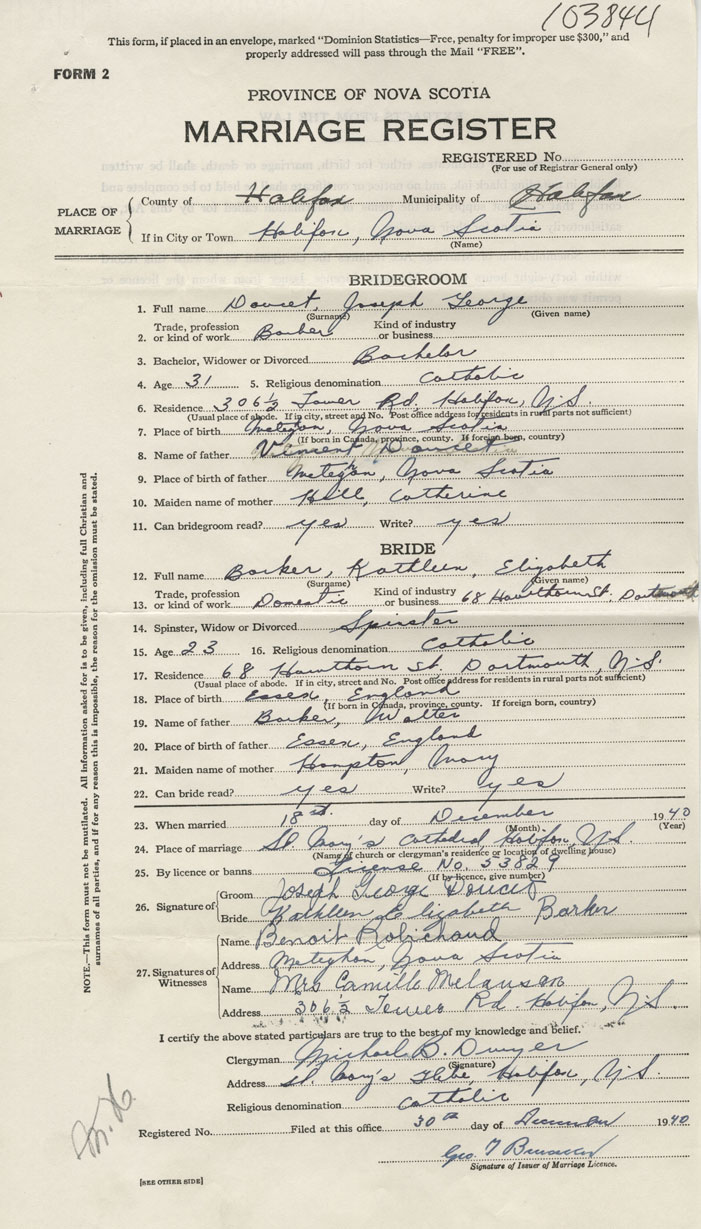 103844
This form, if placed in an envelope, marked "Dominion Statistics—Free, penalty for improper use $300," and
properly addressed will pass through the Mail "FREE".
FORM 2
PROVINCE OF NOVA SCOTIA
MARRIAGE REGISTER
REGISTERED No.
(For use of Registrar General only)
PLACE OF MARRIAGE
County of Halifax Municipality of Halifax
If in City or Town Halifax, Nova Scotia
(Name)
BRIDEGROOM
1. Full name Doucet, Joseph George
(Surname) (Given name)
2. Trade, profession or kind of work Barker Kind of industry or business
3. Bachelor, Widower or Divorced Bachelor
4. Age 31 5. Religious denomination Catholic
6. Residence 306½ Tower Rd, Halifax, N.S.
(Usual place of abode. If in city, street and No. Post office address for residents in rural parts not sufficient)
7. Place of birth Metegan, Nova Scotia
(If born in Canada, province, county. If foreign born, country)
8. Name of father Vincent Doucet
9. Place of birth of father Metegan, Nova Scotia
10. Maiden name of mother Hill, Catherine
11. Can bridegroom read? yes Write? yes
BRIDE
12. Full name Barker, Kathleen, Elizabeth
(Surname) (Given name)
13. Trade, profession or kind of work Domestic Kind of industry or business 68 Hawthorn St. Dartmouth
14. Spinster, Widow or Divorced Spinster
15. Age 23 16. Religious denomination Catholic
17. Residence 68 Hawthorn St, Dartmouth, N.S.
(Usual place of abode. If in city, street and No. Post office address for residents in rural parts not sufficient)
18. Place of birth Essex, England
(If born in Canada, province, county. If foreign born, country)
19. Name of father Barker, Walter
20. Place of birth of father Essex, England
21. Maiden name of mother Hampton, Mary
22. Can bride read? yes Write? yes
23. When married 18st. day of December 1940
(Month) (Year)
24. Place of marriage St. Mary's Catedral, Halifax, N.S.
(Name of church or clergyman's residence or location of dwelling house)
25. By licence or banns License No. 53829
(If by licence, give number)
26. Signature of
Groom Joseph George Doucet
Bride Kathleen Elizabeth Barker
27. Signatures of Witnesses
Name Benoit Robichaud
Address Meteghan, Nova Scotia
Name Mrs Camille Melanson
Address 306½ Tower Rd. Halifax, N.S.
I certify the above stated particulars are true to the best of my knowledge and belief.
Clergyman Michael B. Dwyer
(Signature)
Address St. Mary's Glebe, Halifax, N.S.
Religious denomination Catholic
Registered No. Filed at this office 30th day of December 1940
Signature of Issuer of Marriage Licence.
[SEE OTHER SIDE]
NOTE.—This form must not be mutilated. All information asked for is to be given, including full Christian and
surnames of all parties, and if for any reason this is impossible, the reason for the omission must be stated.